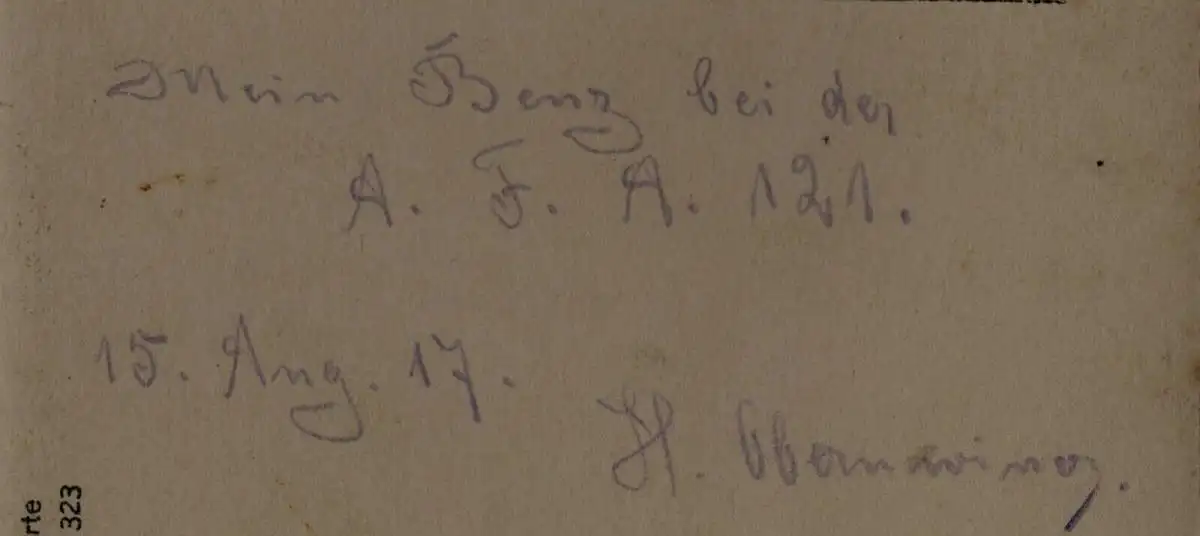 Mein Benz bei der
A. F. A. 121.
15. Aug. 17.
H.
rte
323